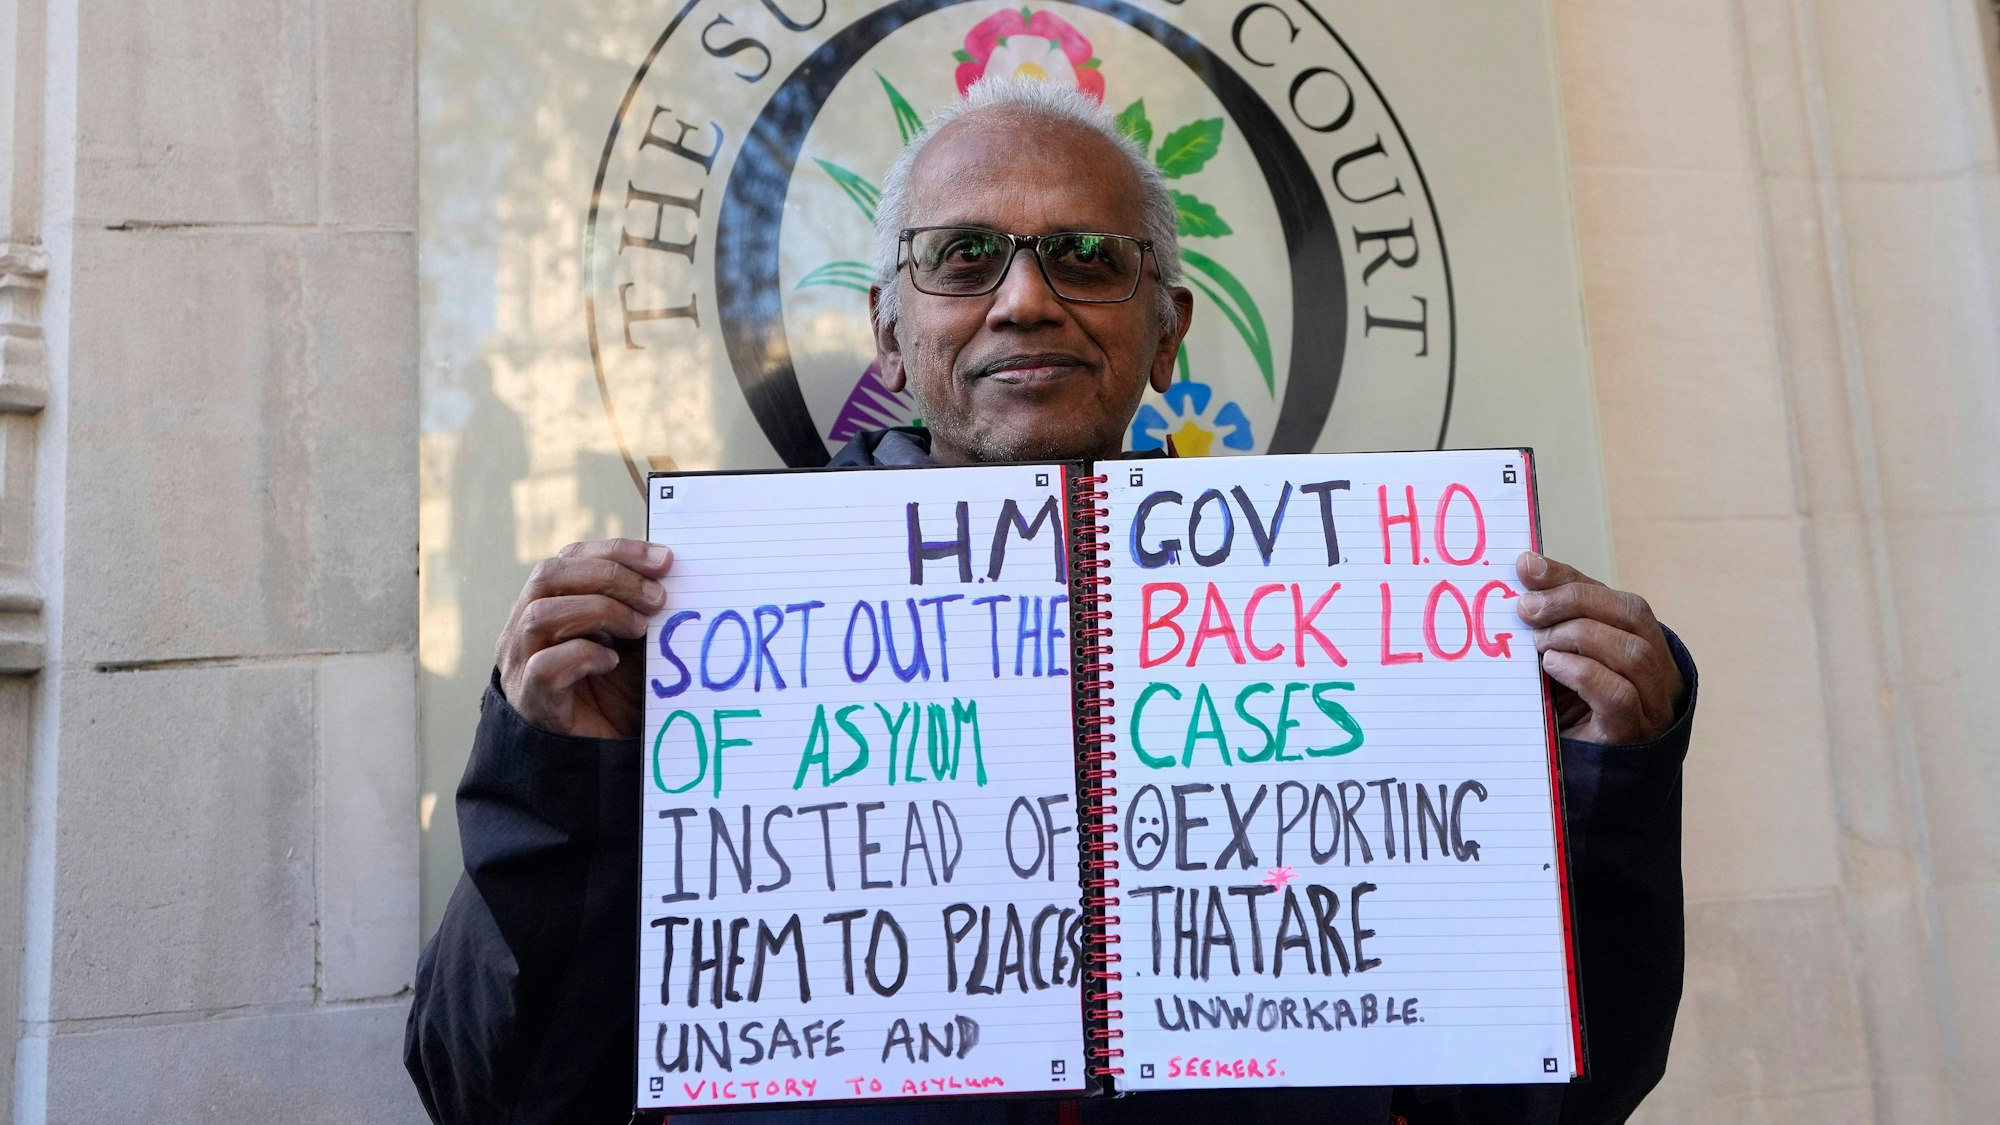 THE SU
COURT
H.M GOVT. H.O.
SORT OUT THE BACK LOG
OF ASYLUM CASES
INSTEAD OF ☹EXPORTING
THEM TO PLACES THAT ARE
UNSAFE AND UNWORKABLE.
VICTORY TO ASYLUM SEEKERS.